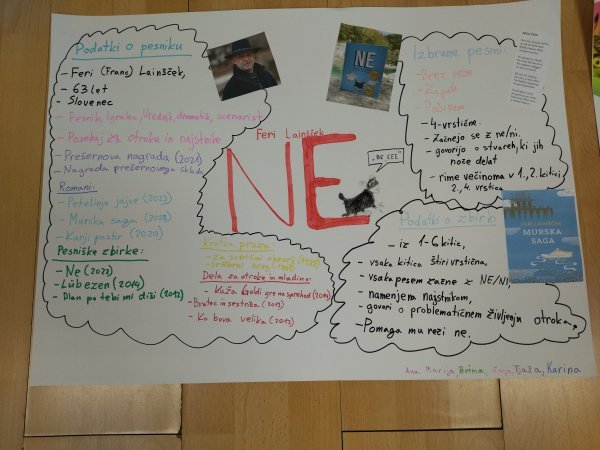 Podatki o pesniku
- Feri (Franc) Lainšček,
- 63 let
- Slovenec
- Pesnik, igralec, Urednik, dramatik, scenarist
- Posebaj za otroke in najstnike
- Prešernova nagrada (2021)
- Nagrada prešernovega sklada
Romani:
- Petelinje jajce (2023)
- Murska saga (2022)
- Kurji pastir (2020)
Pesniške zbirke:
- Ne (2022)
- Lübezen (2014)
- Dlan po tebi mi diši (2012)
Feri Lainšček
NE
"BE SEL"
Kratka proza:
- za svetlimi obzorji
- srebrni breg
Dela za otroke in mladino:
- Kuža Goldi gre na sprehod (2014)
- Bratec in sestrica (2013)
- Ko bova velika (2012)
NE
Izbrane pesmi
- Brez veze
- Zaguta
- Počivam
- 4-vrstične.
- Začnejo se z ne/ni.
- govorijo o stvareh, ki jih
noče delat
- rime večinoma v 1., 2. kitici
2., 4. vrstica
FERI LAINŠČEK
MURSKA
SAGA
Podatki o zbirki
- iz 1-6 kitic,
- vsaka kitica štiri vrstična,
- vsaka pesem začne z NE/NI,
- namenjena najstnikom,
- govori o problematičnem življenju otroka,
- Pomaga mu rečt ne.
Ana, Marija, Brina, Zarja, Tjaša, Karina